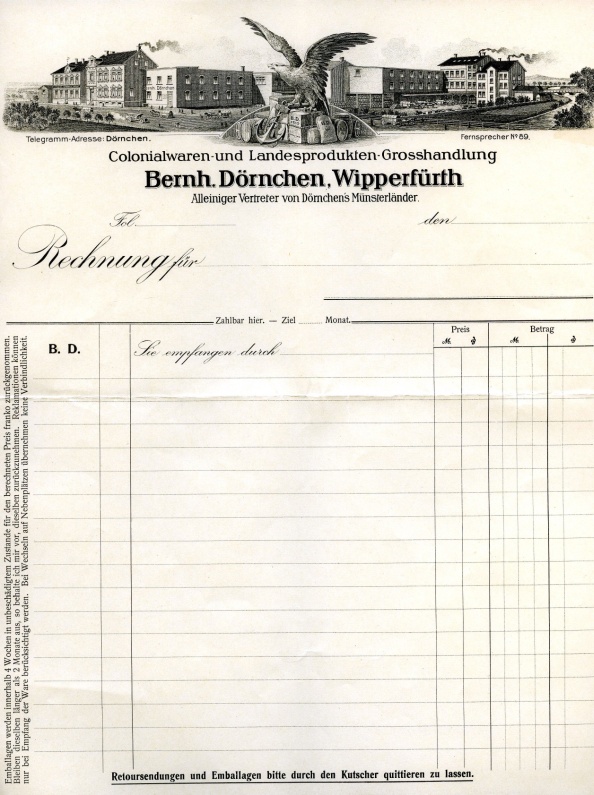 Bernh. Dörnchen
Telegramm-Adresse: Dörnchen.
Fernsprecher No 89.
Colonialwaren-und Landesprodukten-Grosshandlung
Bernh. Dörnchen, Wipperfürth
Alleiniger Vertreter von Dörnchen's Münsterländer.
Fol.
den
Rechnung für
Zahlbar hier. — Ziel Monat.
Preis Betrag
M. ₰ M. ₰
B. D.
Sie empfangen durch
Emballagen werden innerhalb 4 Wochen in unbeschädigtem Zustande für den berechneten Preis franko zurückgenommen.
Bleiben dieselben länger als 2 Monate aus, so behalte ich mir vor, dieselben zurückzunehmen. Reklamationen können
nur bei Empfang der Ware berücksichtigt werden. Bei Wechseln auf Nebenplätzen übernehmen keine Verbindlichkeit.
Retoursendungen und Emballagen bitte durch den Kutscher quittieren zu lassen.